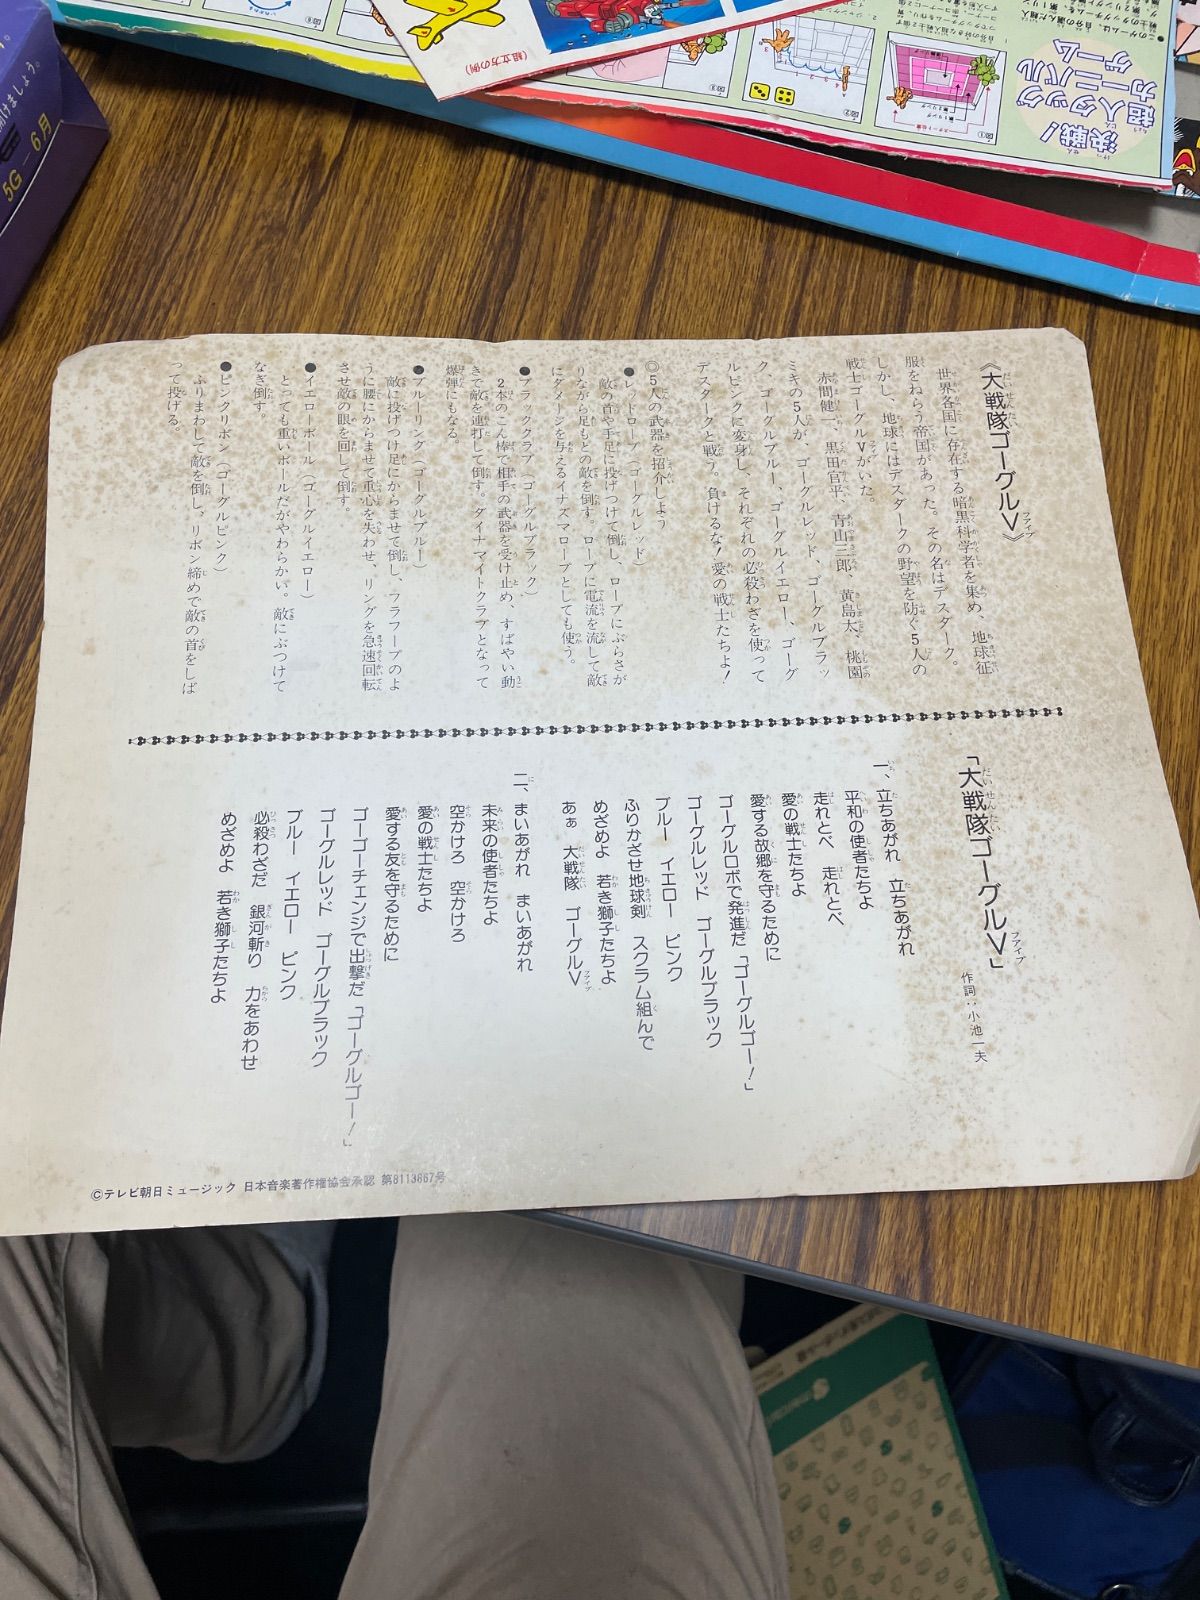 《大戦隊ゴーグルⅤ》
世界各国に存在する暗黒科学者を集め、地球征
服をねらう帝国があった。その名はデスダーク。
しかし、地球にはデスダークの野望を防ぐ5人の
戦士ゴーグルⅤがいた。
赤間健一、黒田官平、青山三郎、黄島太、桃園
ミキの5人が、ゴーグルレッド、ゴーグルブラッ
ク、ゴーグルブルー、ゴーグルイエロー、ゴーグ
ルピンクに変身し、それぞれの必殺わざを使って
デスダークと戦う。負けるな!愛の戦士たちよ!
◎5人の武器を紹介しよう
●レッドロープ(ゴーグルレッド)
敵の首や手足に投げつけて倒し、ロープにぶらさが
りながら足もとの敵を倒す。ロープに電流を流して敵
にダメージを与えるイナズマロープとしても使う。
●ブラッククラブ(ゴーグルブラック)
2本のこん棒で相手の武器を受け止め、すばやい動
きで敵を連打して倒す。ダイナマイトクラブとなって
爆弾にもなる。
●ブルーリング(ゴーグルブルー)
敵に投げつけ足にからませて倒し、フラフープのよ
うに腰にからませて重心を失わせ、リングを急速回転
させ敵の眼を回して倒す。
●イエローボール(ゴーグルイエロー)
とっても重いボールだがやわらかい。敵にぶつけて
なぎ倒す。
●ピンクリボン(ゴーグルピンク)
ふりまわして敵を倒し、リボン締めで敵の首をしば
って投げる。
「大戦隊ゴーグルⅤ」
作詞:小池一夫
一、立ちあがれ 立ちあがれ
平和の使者たちよ
走れとべ 走れとべ
愛の戦士たちよ
愛する故郷を守るために
ゴーグルロボで発進だ「ゴーグルゴー!」
ゴーグルレッド ゴーグルブラック
ブルー イエロー ピンク
ふりかざせ地球剣 スクラム組んで
めざめよ 若き獅子たちよ
あぁ 大戦隊 ゴーグルⅤ
二、まいあがれ まいあがれ
未来の使者たちよ
空かけろ 空かけろ
愛の戦士たちよ
愛する友を守るために
ゴーゴーチェンジで出撃だ「ゴーグルゴー!」
ゴーグルレッド ゴーグルブラック
ブルー イエロー ピンク
必殺わざだ 銀河斬り 力をあわせ
めざめよ 若き獅子たちよ
©テレビ朝日ミュージック 日本音楽著作権協会承認 第8113867号
決戦!
超人タッグ
カーニバル
ゲーム
(組立方の例)
かけましょう。
5G
6月